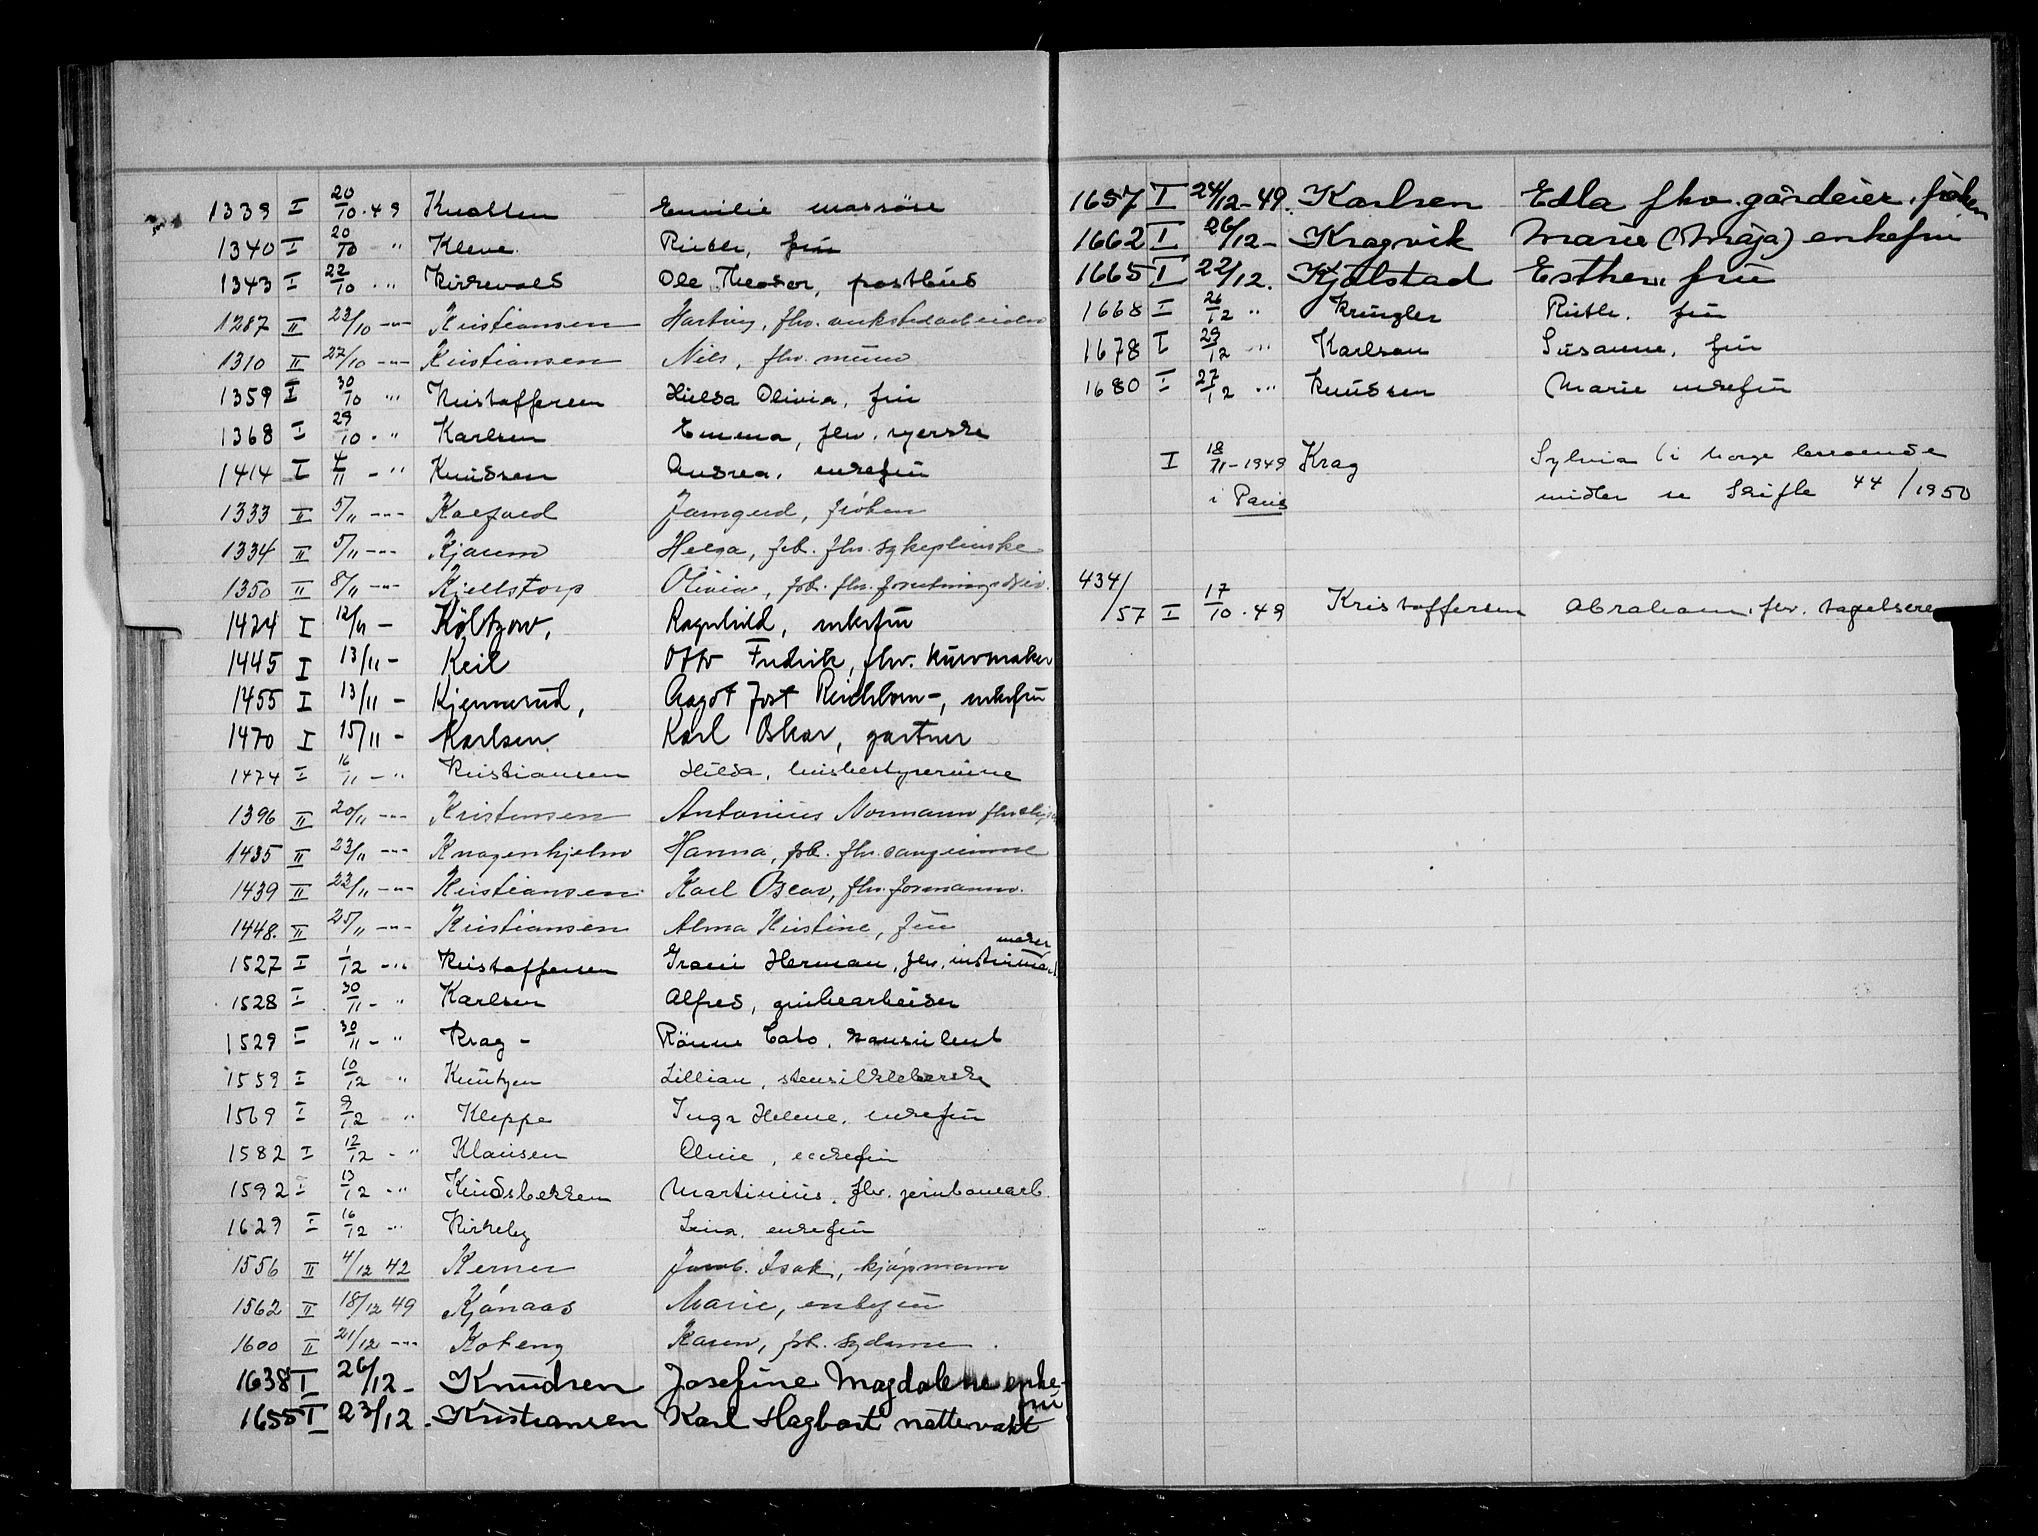 1339 I 20/10-49 Knatten Emilie massøse
1340 I 20/10 " Kleve Ruth, fru
1343 I 22/10 - " Kirkevold Ole Theodor, postbud
1287 II 23/10 -"- Kristiansen Hartvig, fhv.
1310 II 27/10 -"- Kristiansen Nils, fhv. murer
1359 I 30/10 " Kristoffersen Hilda Olivia, fru
1368 I 29/10 - " Karlsen Emma, fhv. syerske
1414 I 4/11 - " Knudsen Andrea, enkefru
1333 II 5/11 -"- frøken
1334 II 5/11 -"- Kjærum Helga, frk. fhv. sykepleierske
1350 II 8/11 -"- Kjellstorp Olivia, frk. fhv. forretningsdriv.
1424 I 12/11 - Költzow, Ragnhild, enkefru
1445 I 13/11 - Keil Otto Fredrik, fhv. kurvmaker
1455 I 13/11 - Kjennerud, Aagot Jost Reichborn-, enkefru
1470 I 15/11 - Karlsen Karl Oskar, gartner
1474 I 16/11 - " Kristiansen Hilda, husbestyrerinne
1396 II 20/11 -"- Kristensen Antonius Normann fhv.
1435 II 23/11 -"- Knagenhjelm Hanna, frk. fhv. sangerinne
1439 II 22/11 -"- Kristiansen Karl Oscar, fhv. formann.
1448. II 25/11 -"- Kristiansen Alma Kristine, fru
1527 I 1/12 -"- Kristoffersen Herman, fhv. instrumentmaker
1528 I 30/11 - " Karlsen Alfred, grubearbeider
1529 I 30/11 - " Krag - Rönne Cato, konsulent
1559 I 10/12 " Knutzen Lillian,
1569 I 9/12 " Kleppe Inga Helene, enkefru
1582 I 12/12 - " Klausen Aline, enkefru
1592 I 13/12 -" Kindsbekken Martinius, fhv. jernbanearb.
1629 I 16/12 " Kirkeby Lina, enkefru
1556 II 4/12 42 Kerner Jacob Isak, kjøpmann
1562 II 18/12 49 Kjónaas Marie, enkefru
1600 II 21/12 -"- Koteng Karen, frk. sydame.
1638 I 26/12- Knudsen Josefine Magdalene enkefru
1655 I 23/12. Kristiansen Karl Hagbart nattevakt
1657 I 24/12-49. Karlsen Edla fhv. gårdeier, frøken
1662 I 26/12- Kragvik Marie (Maja) enkefru
1665 I 22/12. Kjølstad Esther, fru
1668 I 26/12 " Kringler Ruth, fru
1678 I 29/12 " Karlson Susanne, fru
1680 I 27/12 " Knudsen Marie enkefru
I 18/11-1949 Krag Sylvia (i Norge beroende
i Paris midler se Skifte 44/1950
434/
57 I 17/10-49 Kristoffersen Abraham, fhv. tapetserer